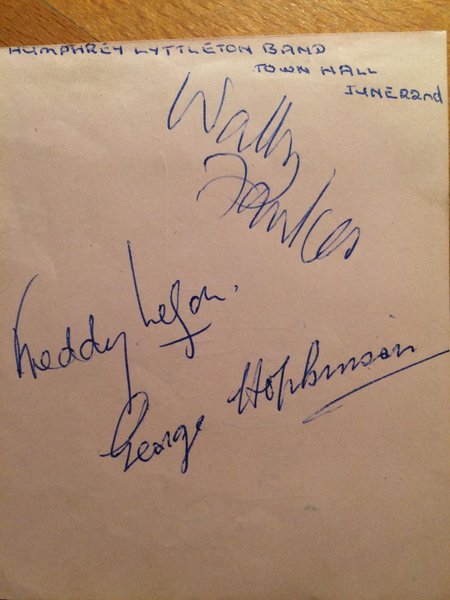 HUMPHREY LYTTLETON BAND
TOWN HALL
JUNE 22nd
Wally
Fawkes
Freddy Legon.
George Hopkinson